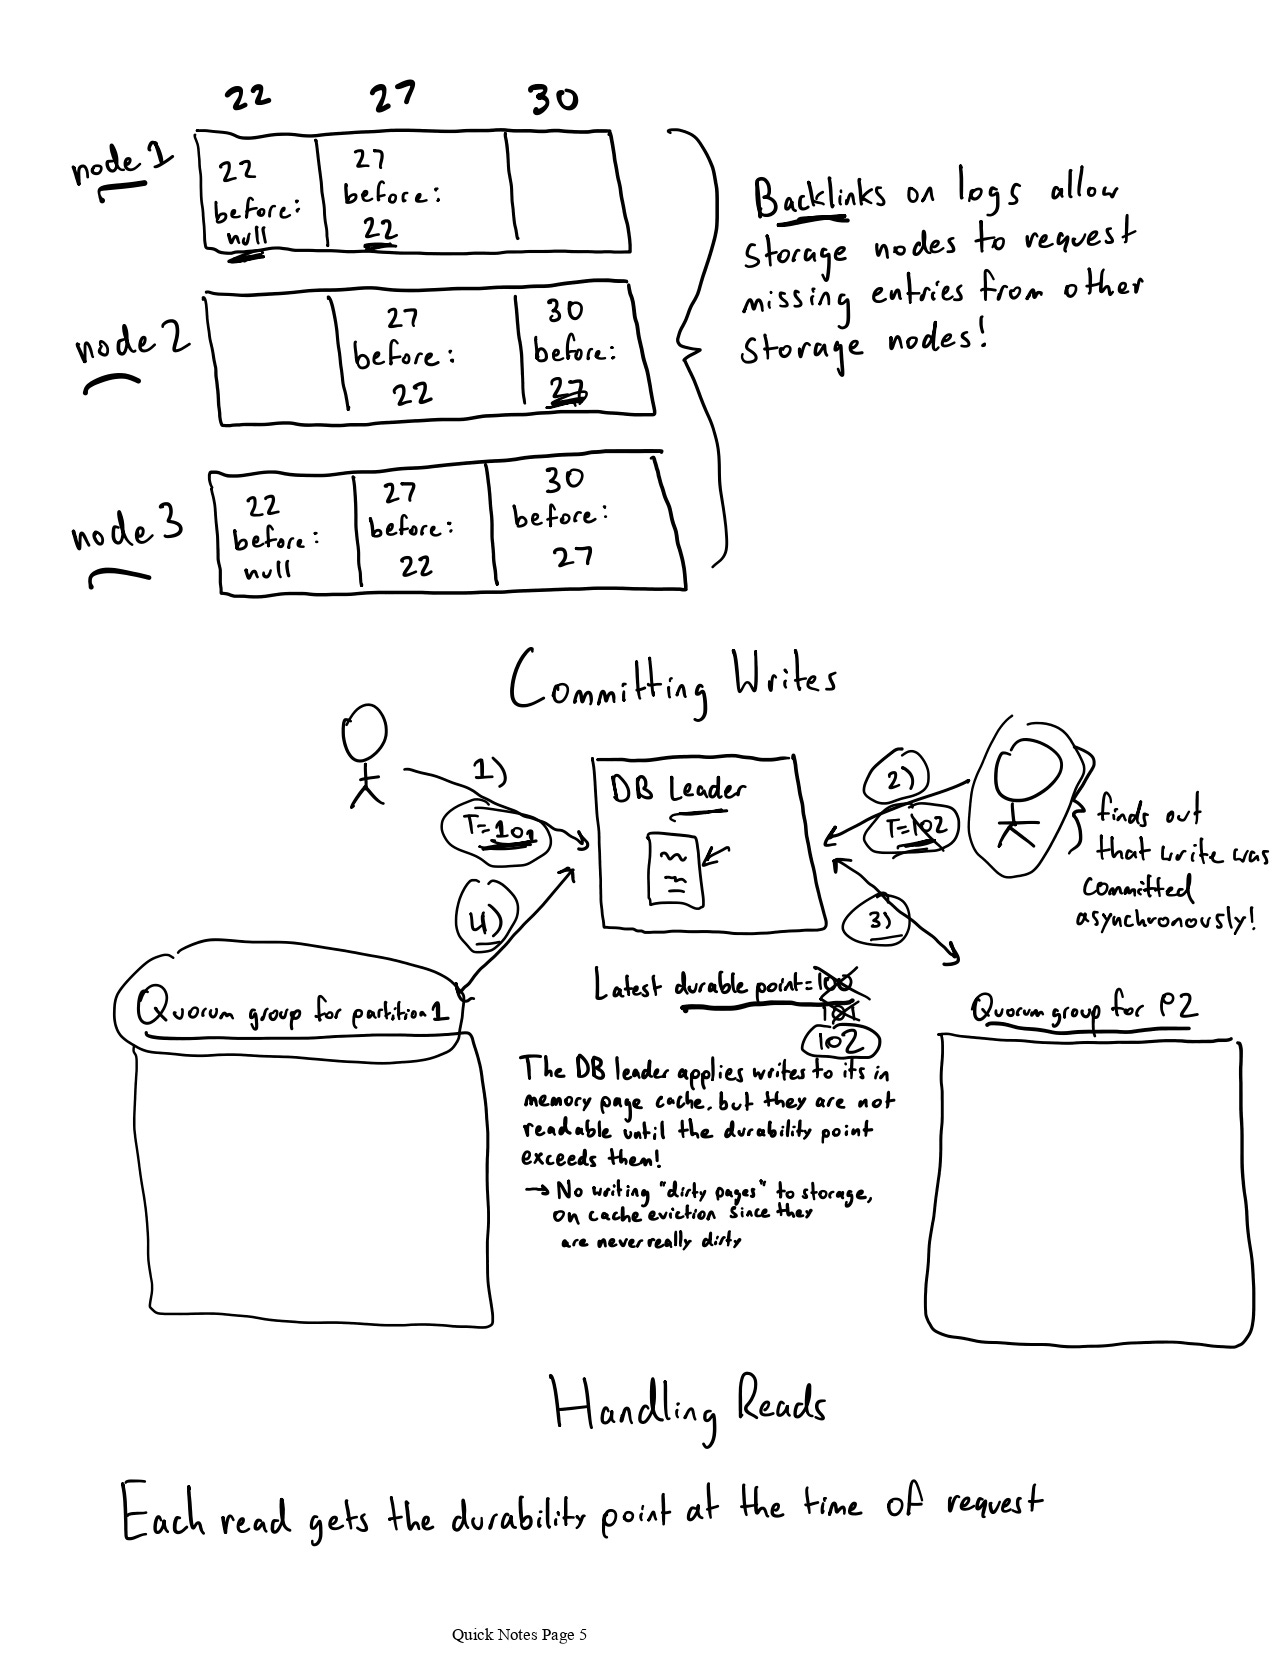 22 27 30
node 1
22
before:
null
27
before:
22
Backlinks on logs allow
storage nodes to request
missing entries from other
storage nodes!
node 2
27
before:
22
30
before:
27
node 3
22
before:
null
27
before:
22
30
before:
27
Committing Writes
1)
T=101
DB Leader
2)
T=102
finds out
that write was
committed
asynchronously!
4)
3)
Latest durable point=100
101
102
Quorum group for partition 1
Quorum group for P2
The DB leader applies writes to its in
memory page cache, but they are not
readable until the durability point
exceeds them!
→ No writing "dirty pages" to storage,
on cache eviction since they
are never really dirty
Handling Reads
Each read gets the durability point at the time of request
Quick Notes Page 5